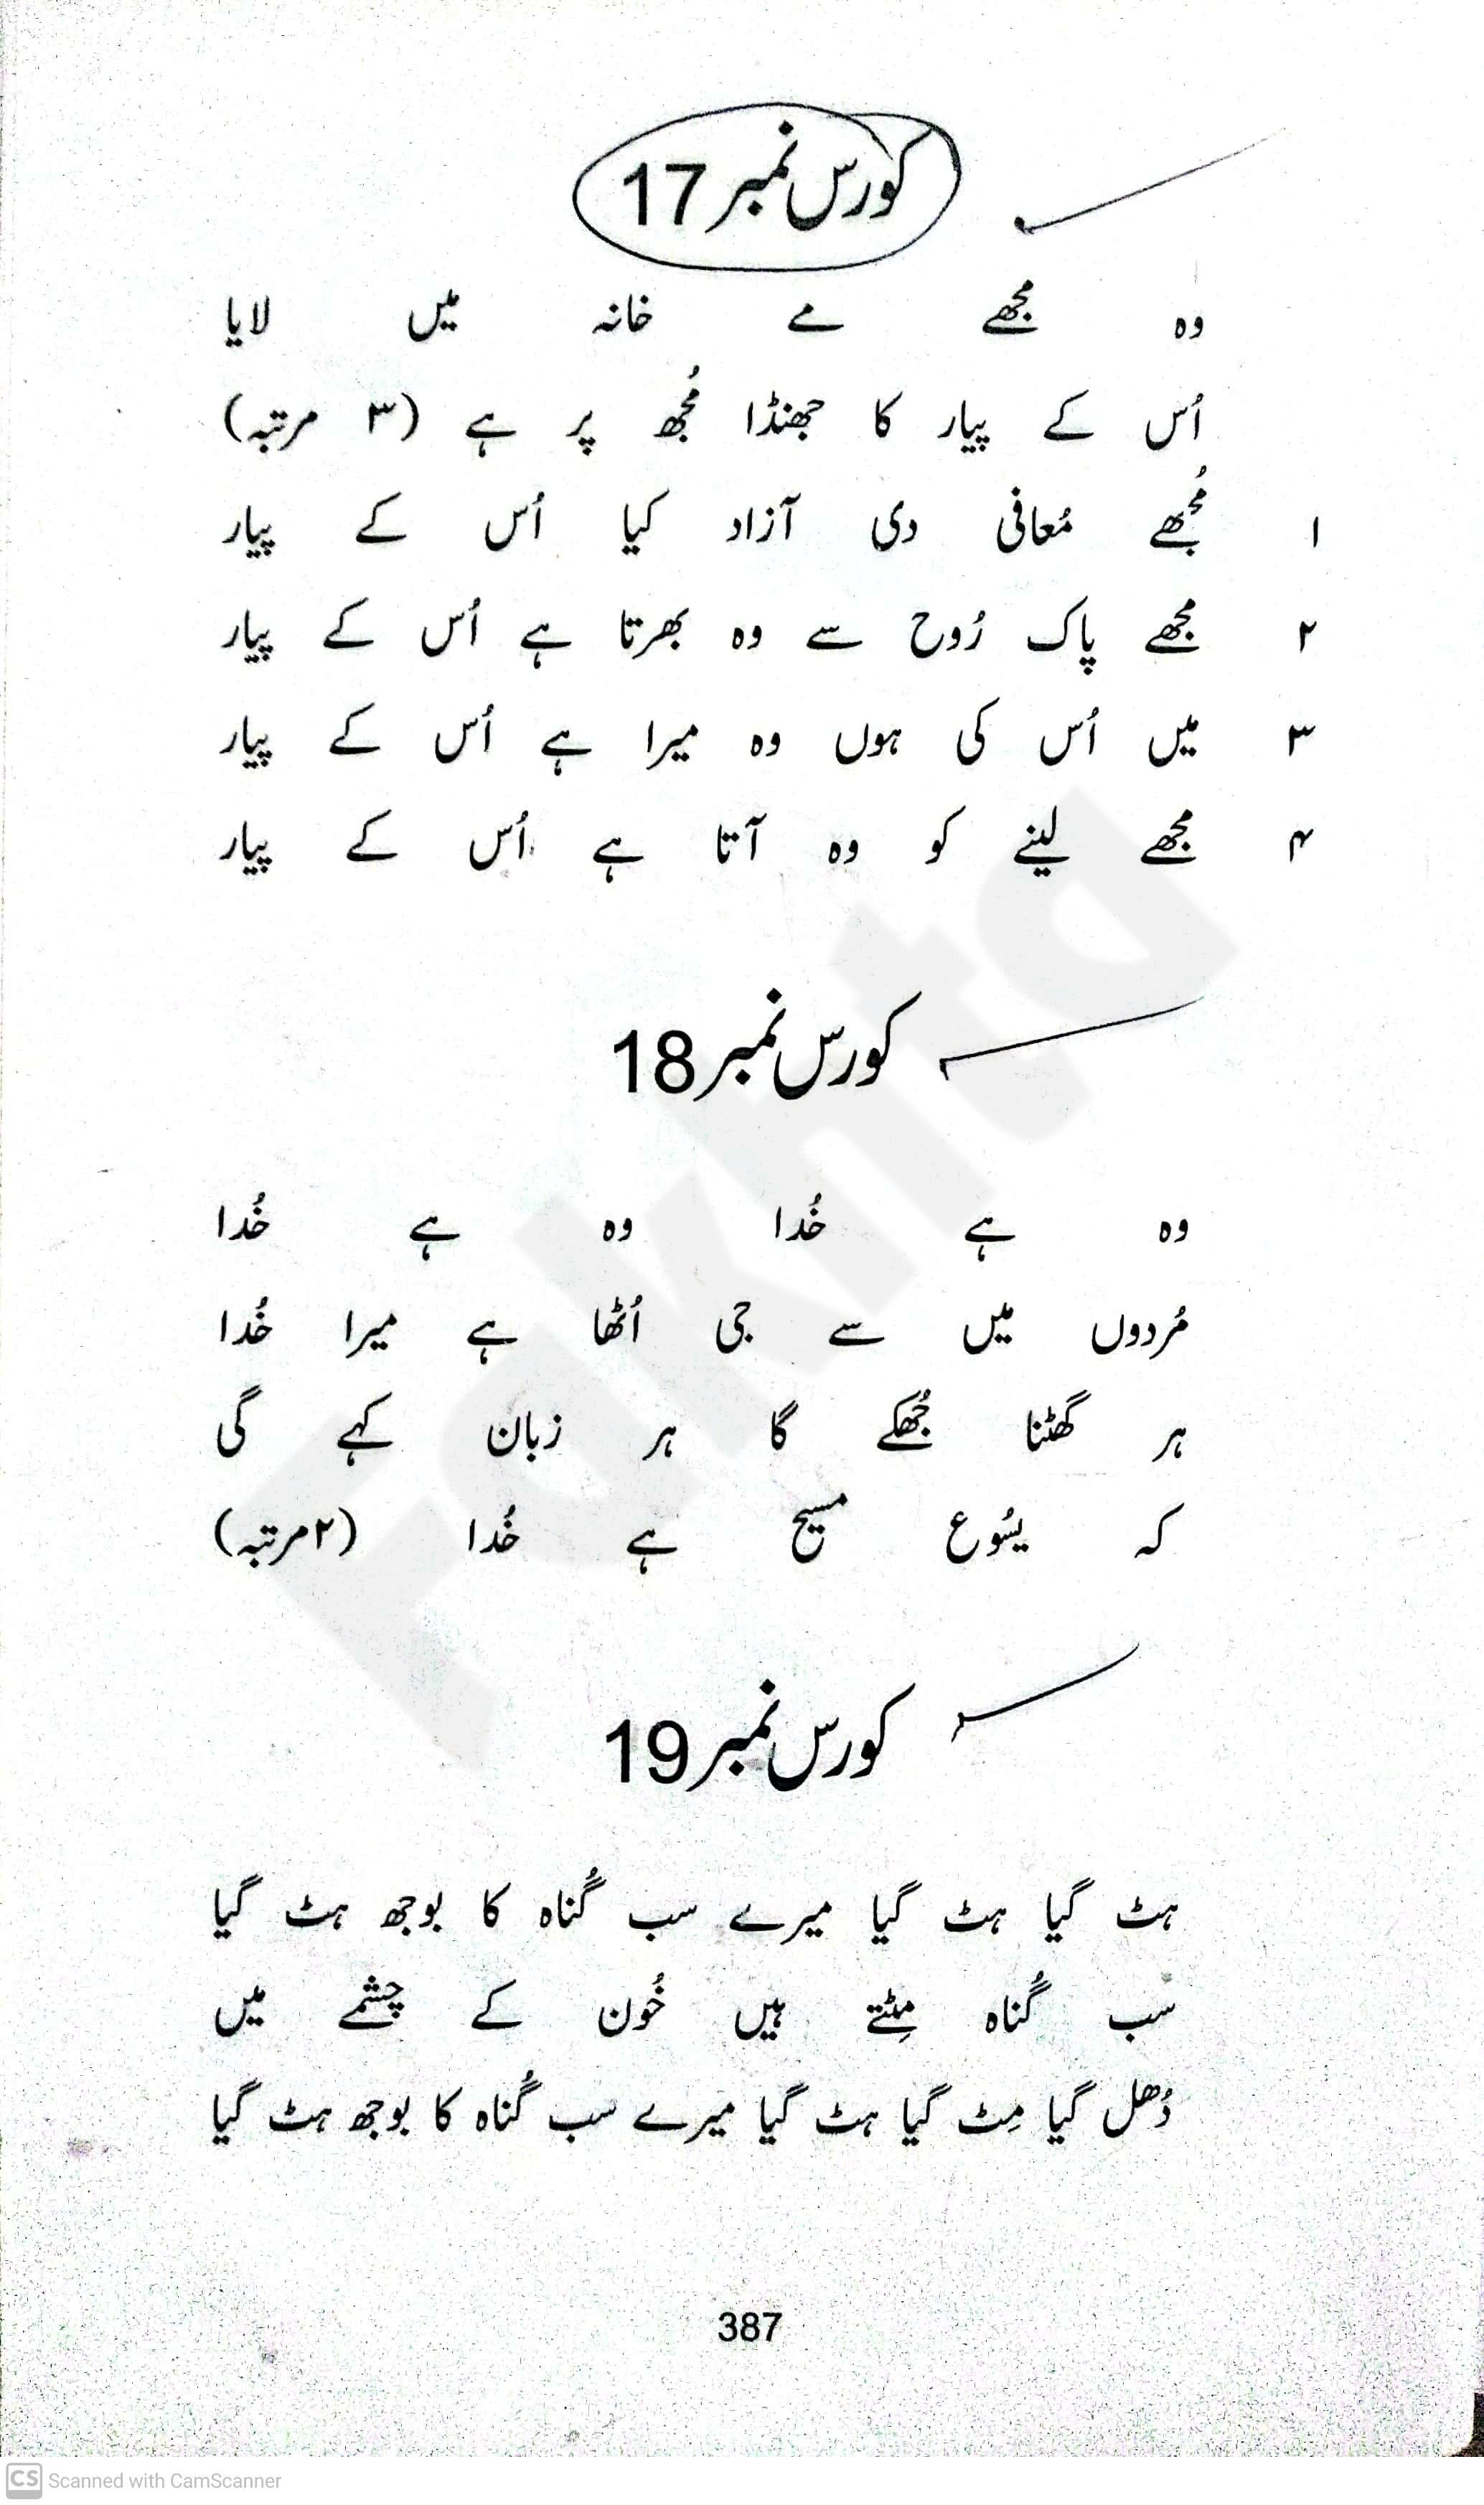 کورس نمبر 17
وہ مجھے مے خانہ میں لایا
اُس کے پیار کا جھنڈا مُجھ پر ہے (۳ مرتبہ)
۱ مُجھے مُعافی دی آزاد کیا اُس کے پیار
۲ مجھے پاک رُوح سے وہ بھرتا ہے اُس کے پیار
۳ میں اُس کی ہوں وہ میرا ہے اُس کے پیار
۴ مجھے لینے کو وہ آتا ہے اُس کے پیار
کورس نمبر 18
وہ ہے خُدا وہ ہے خُدا
مُردوں میں سے جی اُٹھا ہے میرا خُدا
ہر گھٹنا جُھکے گا ہر زبان کہے گی
کہ یسُوع مسیح ہے خُدا (۲مرتبہ)
کورس نمبر 19
ہٹ گیا ہٹ گیا میرے سب گُناہ کا بوجھ ہٹ گیا
سب گُناہ مِٹتے ہیں خُون کے چشمے میں
دُھل گیا مِٹ گیا ہٹ گیا میرے سب گُناہ کا بوجھ ہٹ گیا
387
Fakhta
CS Scanned with CamScanner